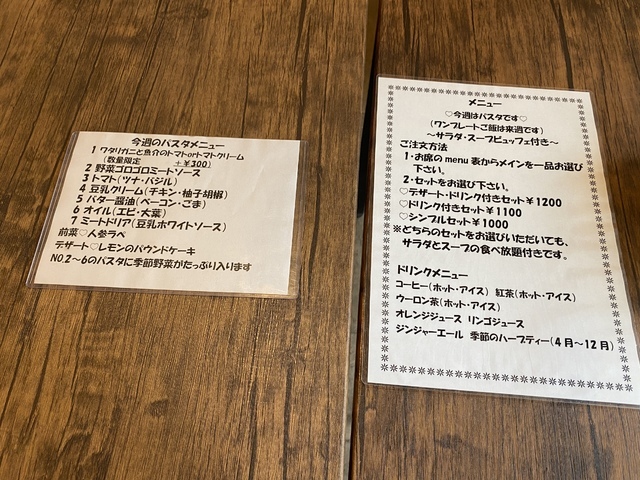 今週のパスタメニュー
1 ワタリガニと魚介のトマトorトマトクリーム
(数量限定 +¥300)
2 野菜ゴロゴロミートソース
3 トマト(ツナ・バジル)
4 豆乳クリーム(チキン・柚子胡椒)
5 バター醤油(ベーコン・ごま)
6 オイル(エビ・大葉)
7 ミートドリア(豆乳ホワイトソース)
前菜♡人参ラペ
デザート♡レモンのパウンドケーキ
NO.2~6のパスタに季節野菜がたっぷり入ります
メニュー
♡今週はパスタです♡
(ワンプレートご飯は来週です)
~サラダ・スープビュッフェ付き~
ご注文方法
1・お席のmenu表からメインを一品お選び
下さい。
2・セットをお選び下さい。
♡デザート・ドリンク付きセット¥1200
♡ドリンク付きセット¥1100
♡シンプルセット¥1000
※どちらのセットをお選びいただいても、
サラダとスープの食べ放題付きです。
ドリンクメニュー
コーヒー(ホット・アイス) 紅茶(ホット・アイス)
ウーロン茶(ホット・アイス)
オレンジジュース リンゴジュース
ジンジャーエール 季節のハーブティー(4月~12月)